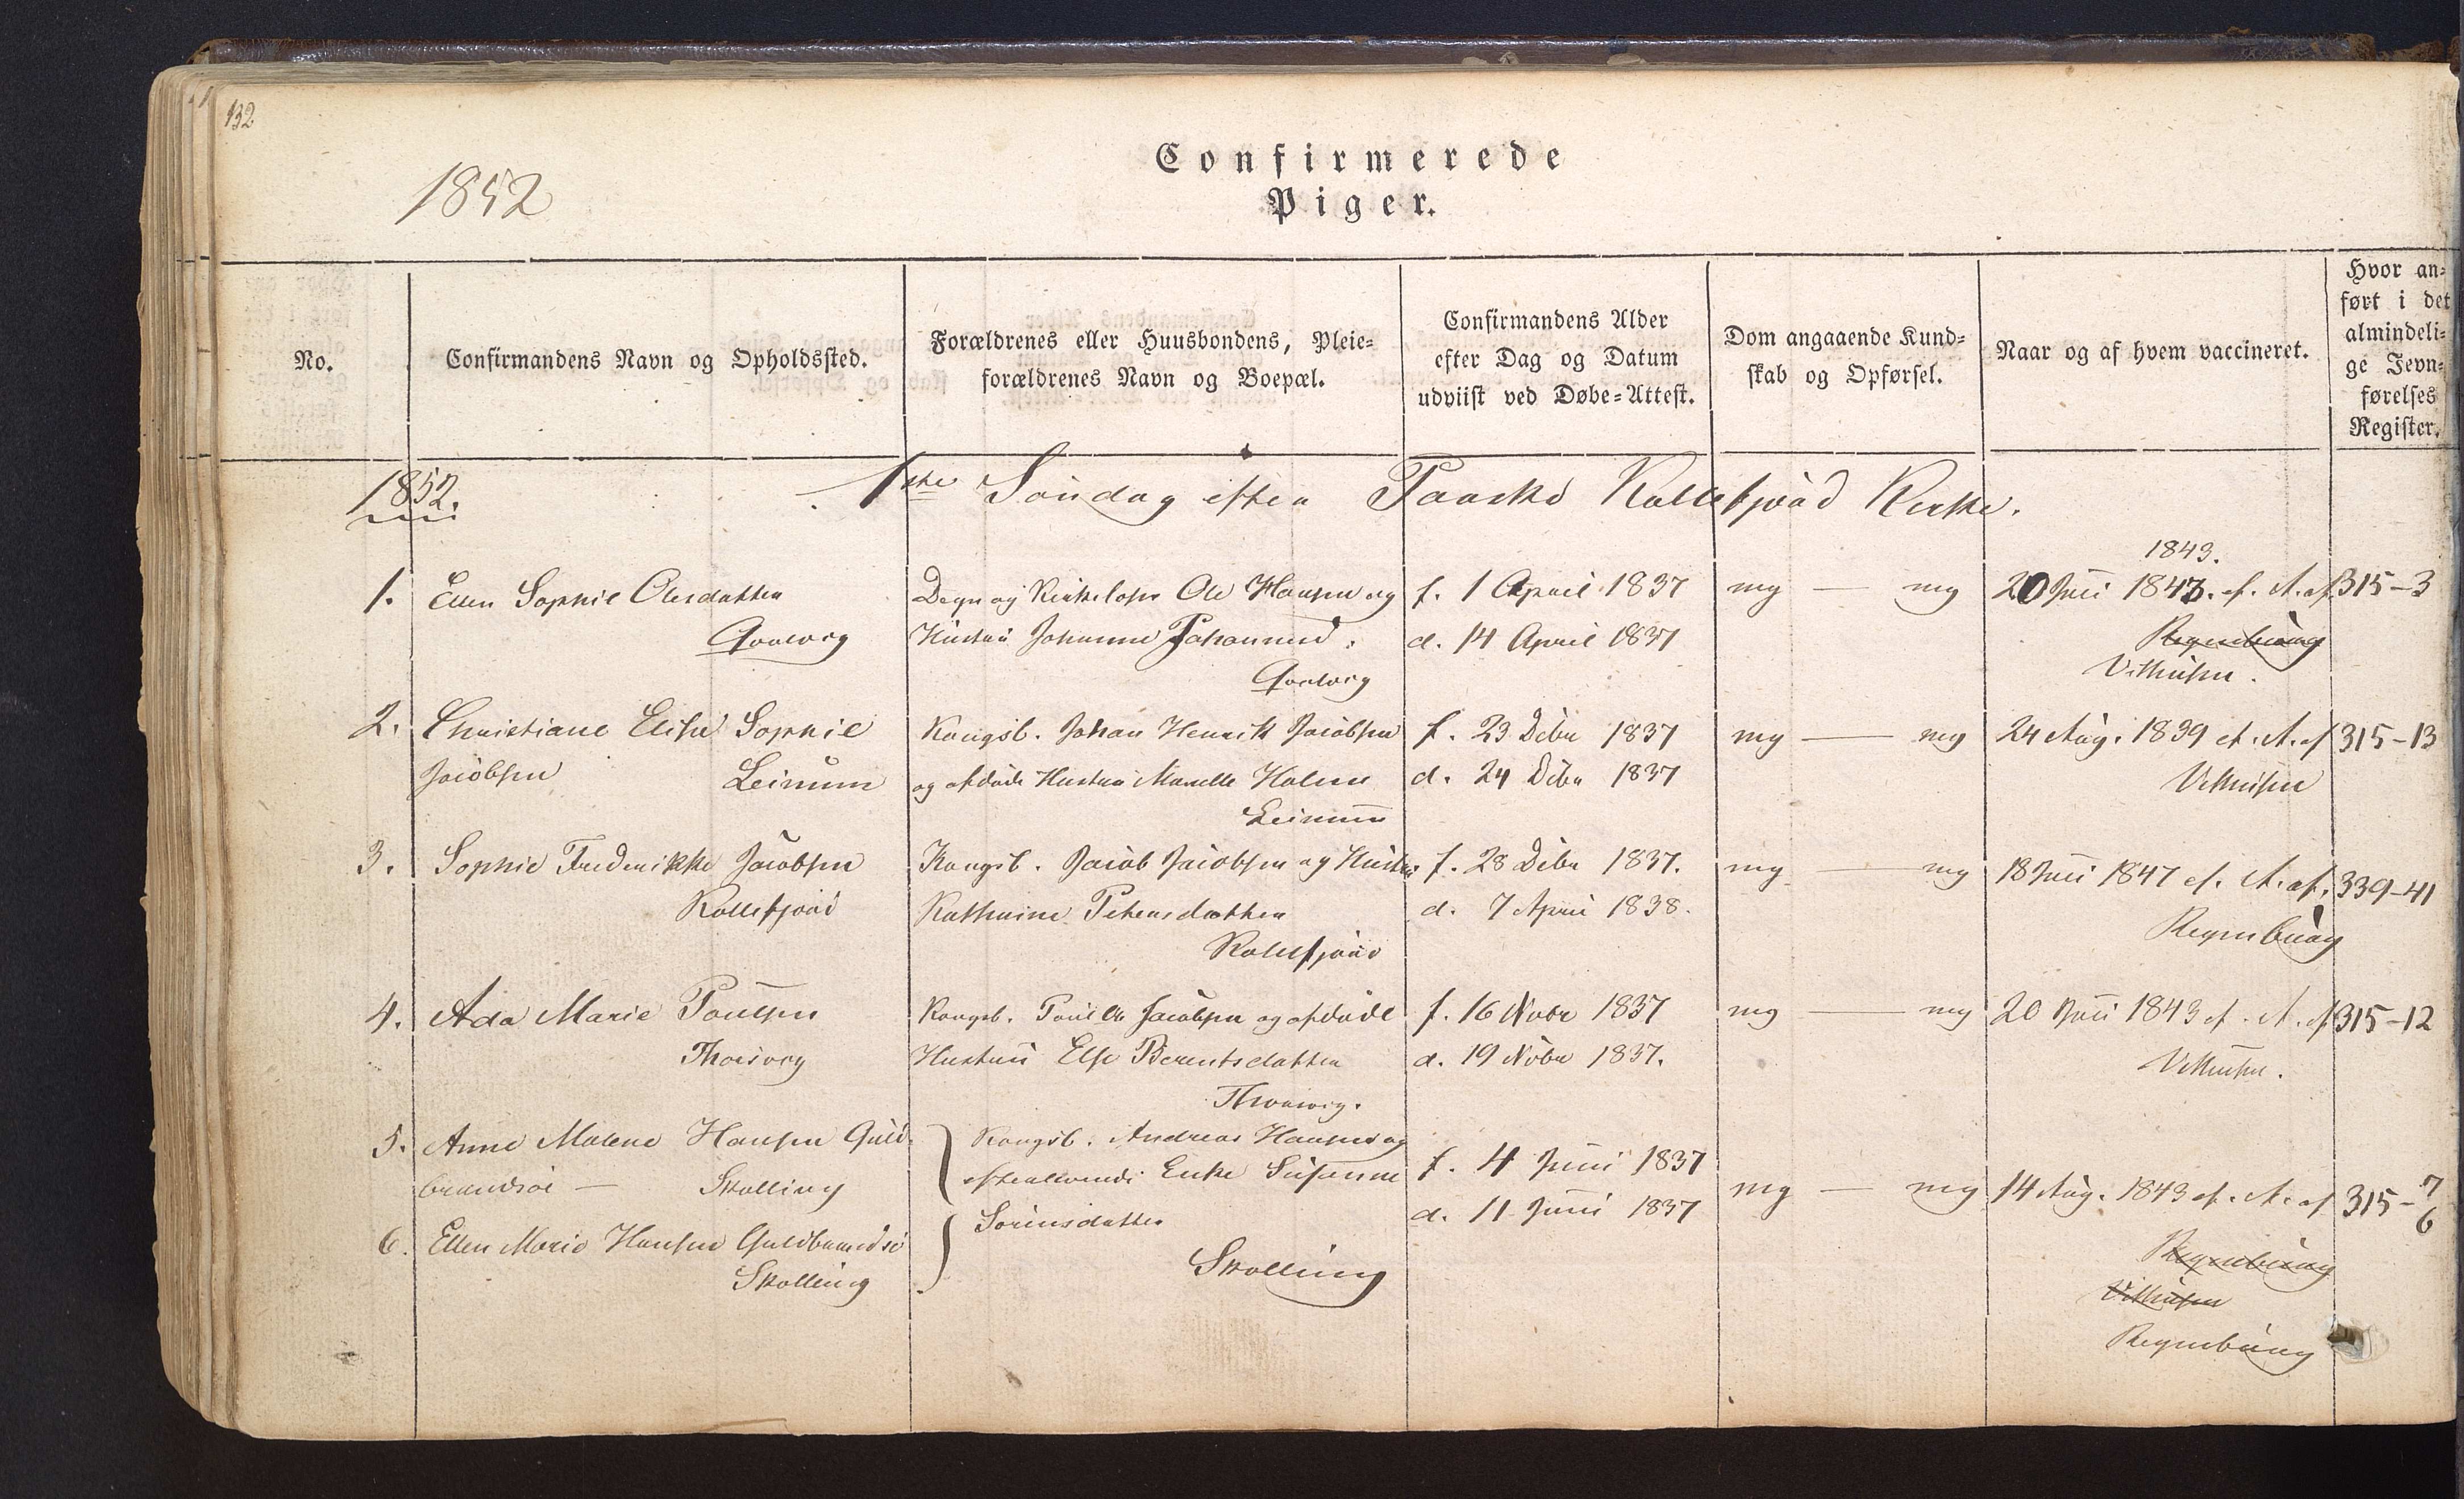 132
1852
Confirmerede
Piger.
No.
Confirmandens Navn og Opholdssted.
Forældrenes eller Huusbondens, Pleie-
forældrenes Navn og Boepæl.
Confirmandens Alder
efter Dag og Datum
udviist ved Døbe-Attest.
Dom angaaende Kund-
skab og Opførsel.
Naar og af hvem vaccineret.
Hvor an-
ført i det
almindeli-
ge Jevn-
førelses
Register.
1852.
1ste Søndag efter Paaske Kollefjord Kirke.
1. Ellen Sophie Olesdatter
Qvalvig
Degn og Kirkeløser Ole Hansen og
Hustru Johanne Johannesd.
Qvalvig
f. 1 April 1837
d. 14 April 1837
mg — mg
1843.
20 Juli 1843. ef. A. af
Regenburg
Vithusen.
315-3
2. Christiane Elise Sophie
Jacobsen Leinum
Kongsb. Johan Henrik Jacobsen
og afdøde Hustru Marelle Holme
Leinum
f. 23 Debr 1837
d. 24 Debr 1837
mg — mg
24 Aug. 1839 ef. A. af
Vithusen
315-13
3. Sophie Frederikke Jacobsen
Kollefjord
Kongsb. Jacob Jacobsen og Hustru
Kathrine Petersdatter
Kollefjord
f. 28 Debr 1837.
d. 7 April 1838.
mg — mg
18 Juli 1847 ef. A. af.
Regenburg
339-41
4. Ada Marie Poulsen
Thorsvig
Kongsb. Poul Jacobsen og afdøde
Hustru Else Berentsdatter
Thorsvig.
f. 16 Nobr 1837
d. 19 Nobr 1837.
mg — mg
20 Juli 1843 ef. A. af
Vithusen.
315-12
5. Anne Malene Hansen Guld-
brandsøe — Skælling
Kongsb. Andreas Hansens og
efterlevende Enke Susanne
Sørensdatter
Skælling
f. 4 Juni 1837
d. 11 Juni 1837
mg — mg
14 Aug. 1843 ef. A. af
Regenburg
Vithusen
Regenburg
315-7
6
6. Ellen Marie Hansen Guldbrandsø
Skælling